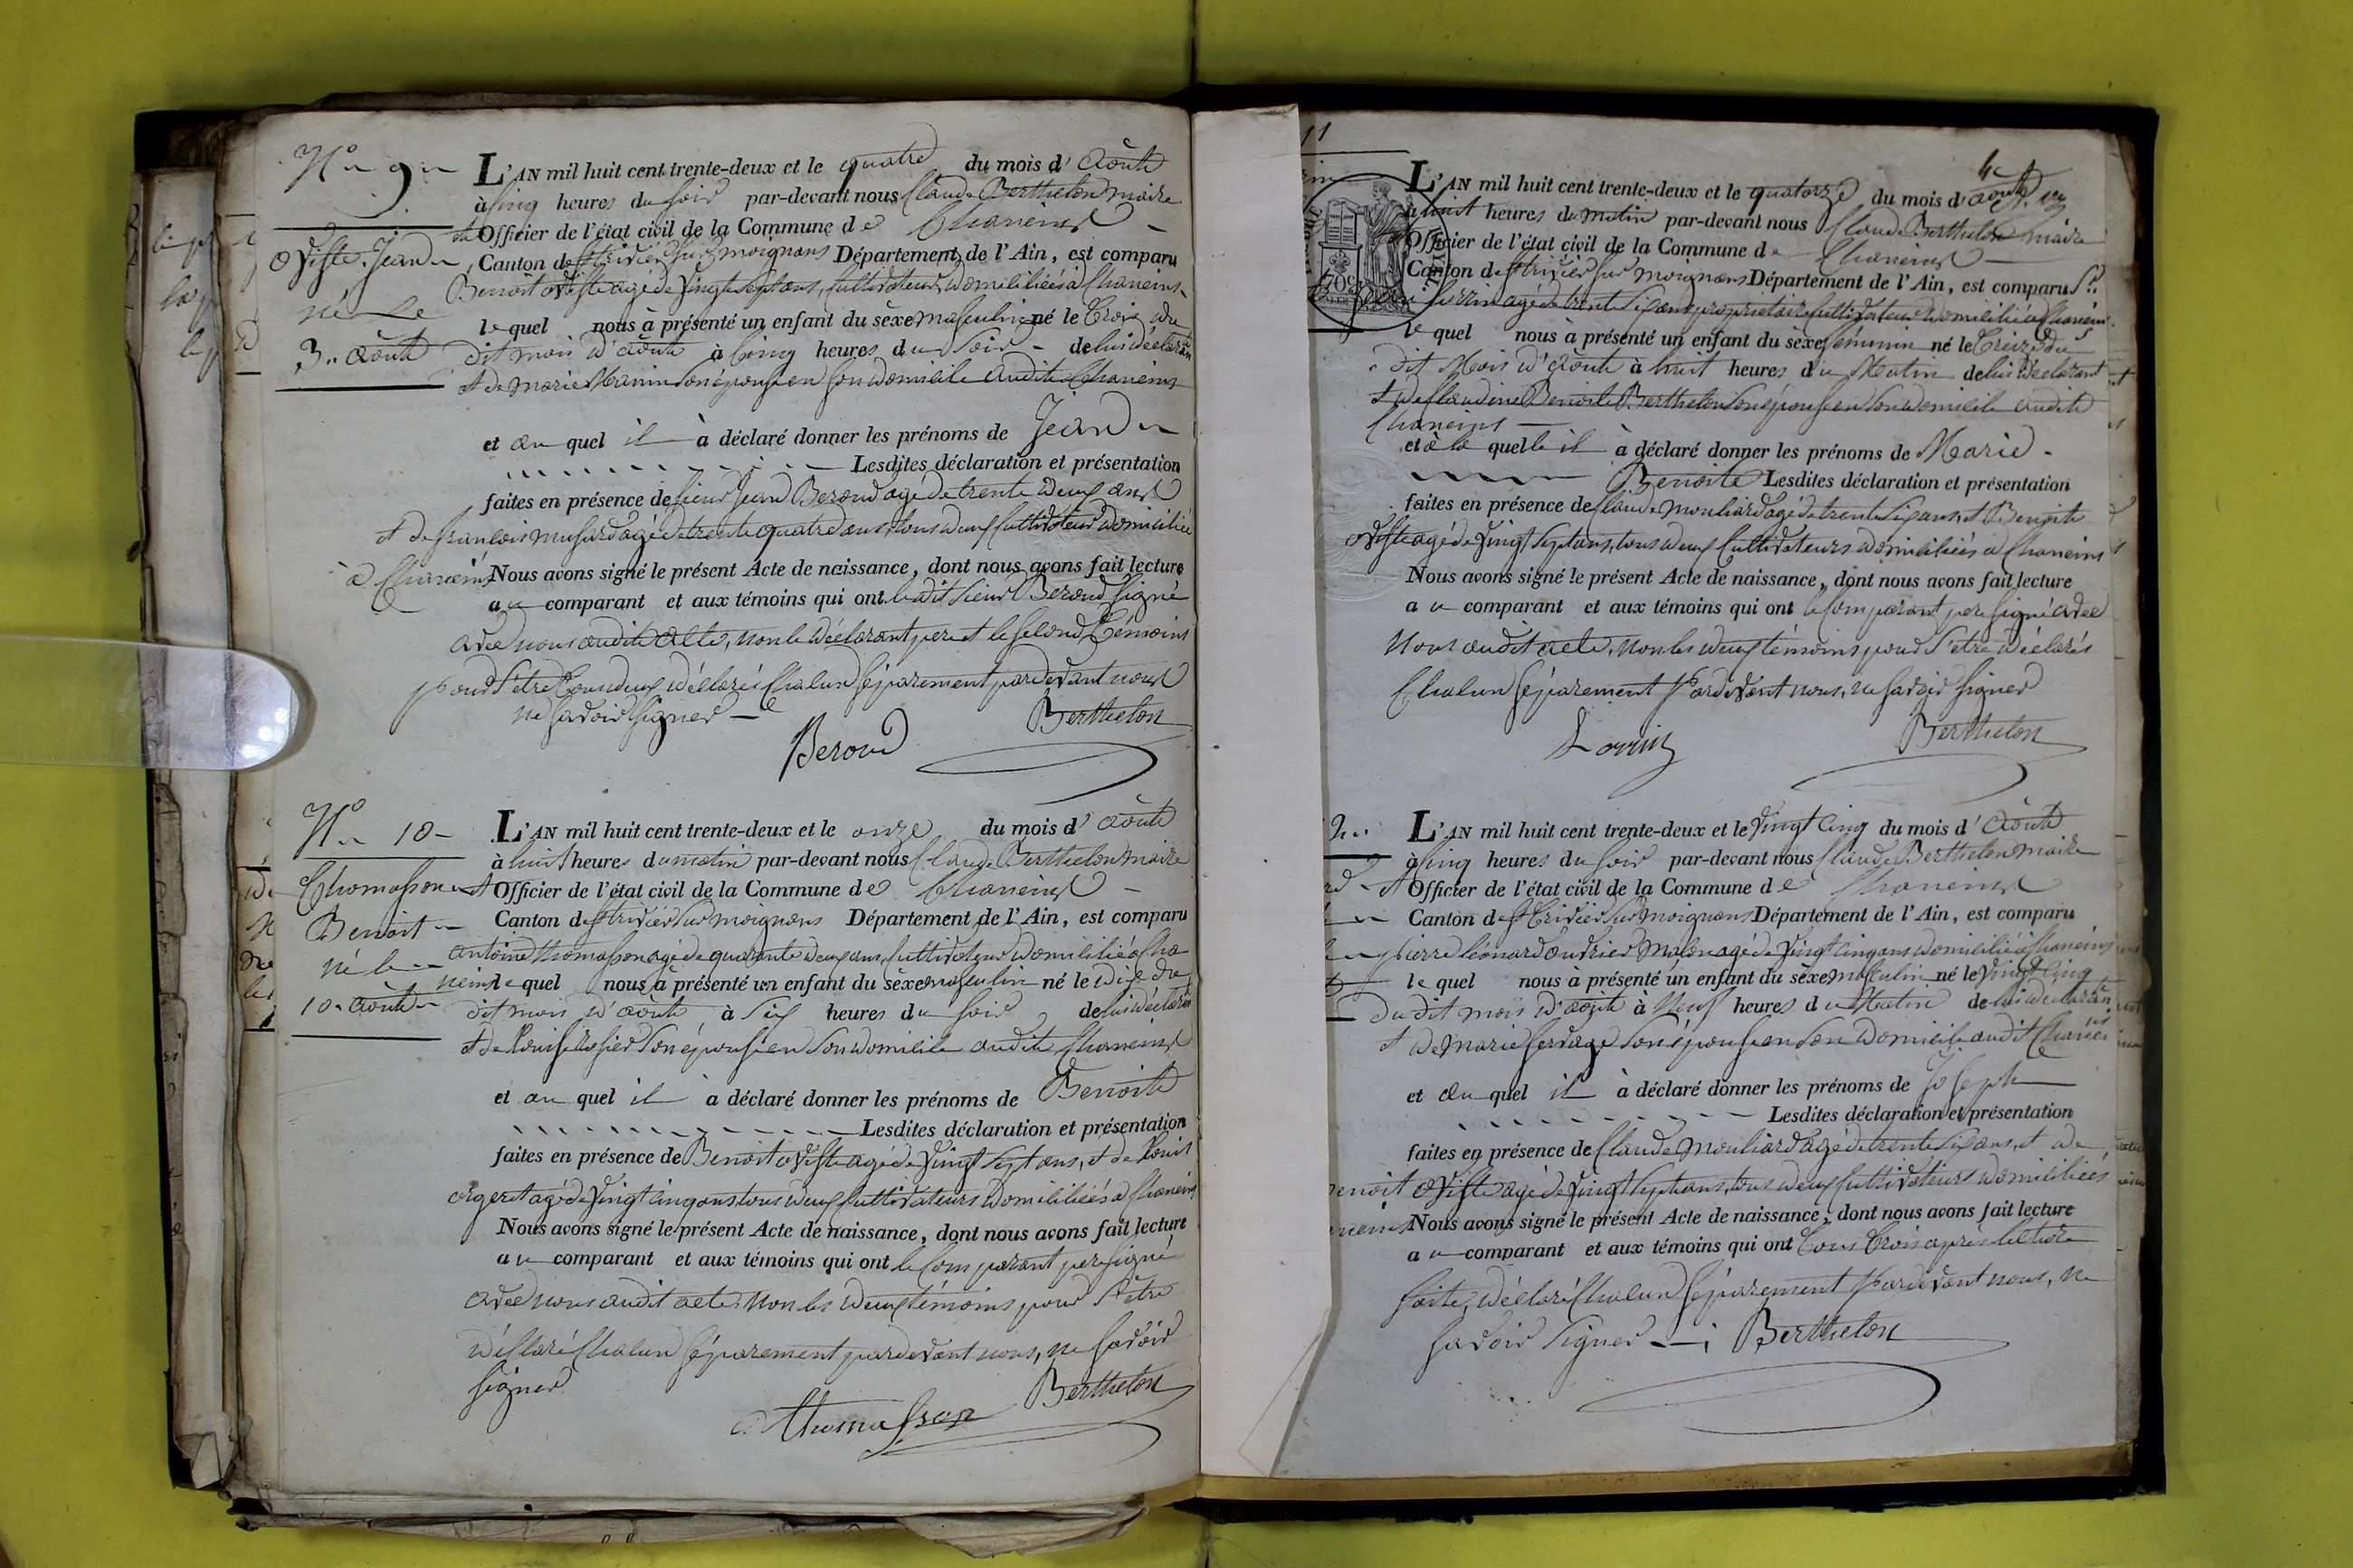 N° 9
Oviste Jean
né Le
3.. août
L'AN mil huit cent trente-deux et le quatre du mois d'août
à cinq heures du soir par-devant nous Claude Berthelon maire
et Officier de l'état civil de la Commune de Chaneins
Canton de St trivier sur moignans Département de l'Ain, est comparu
Benoit oviste agé de vingt sept ans, cultivateur, domiciliés à Chaneins
le quel nous à présenté un enfant du sèxe masculin né le trois du
dit mois d'août à cinq heures du soir de lui déclarant
et de marie son épouse en son domicile audit Chaneins
et au quel il à déclaré donner les prénoms de Jean
Lesdites déclaration et présentation
faites en présence de sieur Jean Beroud agé de trente deux ans
et de françois musard agé de trente quatre ans tous deux cultivateurs domiciliés
à Chaneins Nous avons signé le présent Acte de naissance, dont nous avons fait lecture
au comparant et aux témoins qui ont ledit sieur Beroud signé
avec nous audit acte, non le déclarant pere et le second témoins
pour s'etre tous deux déclaré chacun séparement pardevant nous
ne savoir signer
Beroud Berthelon
N° 10
Thomasson
Benoit
né le
10. août
L'AN mil huit cent trente-deux et le onze du mois d'août
à huit heures du matin par-devant nous Claude Berthelon maire
et Officier de l'état civil de la Commune de Chaneins
Canton de St trivier sur moignans Département de l'Ain, est comparu
antoine thomasson agé de quarante deux ans, cultivateur domicilié à Cha
neins le quel nous à présenté un enfant du sèxe masculin né le dix du
dit mois d'août à six heures du soir de lui déclarant
et de Louise rosier son épouse en son domicile audit Chaneins
et au quel il a déclaré donner les prénoms de Benoit
Lesdites déclaration et présentation
faites en présence de Benoit oviste agé de vingt sept ans, et de Louis
agé de vingt cinq ans tous deux cultivateurs domiciliés à Chaneins
Nous avons signé le présent Acte de naissance, dont nous avons fait lecture
au comparant et aux témoins qui ont le comparant pere signé
avec nous audit acte, non les deux témoins pour s'etre
déclaré chacun séparement pardevant nous, ne savoir
signer
Berthelon
a thomasson
11
L'AN mil huit cent trente-deux et le quatorze du mois d'août
à huit heures du matin par-devant nous Claude Berthelon maire
Officier de l'état civil de la Commune de Chaneins
Canton de St trivier sur moignans Département de l'Ain, est comparu Sr
agé de trente six ans proprietaire cultivateur domicilié à Chaneins
le quel nous à présenté un enfant du sèxe féminin né le treize du
dit Mois d'août à huit heures du Matin de lui déclarant
et de Claudine Benoite Berthelon son épouse en son domicile audit
Chaneins
et à la quelle il à déclaré donner les prénoms de Marie
Benoite Lesdites déclaration et présentation
faites en présence de Claude mouliard agé de trente six ans, et Benoit
oviste agé de vingt sept ans, tous deux cultivateurs domiciliés à Chaneins
Nous avons signé le présent Acte de naissance, dont nous avons fait lecture
au comparant et aux témoins qui ont le comparant pere signé avec
Nous audit acte, non les deux témoins pour s'etre déclarés
chacun séparement pardevant nous, ne savoir signer
Berthelon
2..
L'AN mil huit cent trente-deux et le vingt cinq du mois d'août
à cinq heures du soir par-devant nous Claude Berthelon maire
et Officier de l'état civil de la Commune de Chaneins
Canton de St trivier sur moignans Département de l'Ain, est comparu
pierre léonard agé de vingt cinq ans domicilié à Chaneins
le quel nous à présenté un enfant du sèxe masculin né le vingt cinq
du dit mois d'août à Neuf heures du Matin de lui déclarant
et de marie son épouse en son domicile audit Chaneins
et au quel il à déclaré donner les prénoms de Joseph
Lesdites déclaration et présentation
faites en présence de Claude mouliard agé de trente six ans, et de
benoit oviste agé de vingt sept ans, tous deux cultivateurs domiciliés
Nous avons signé le présent Acte de naissance, dont nous avons fait lecture
au comparant et aux témoins qui ont tous trois après lecture
faite, déclaré chacun séparement pardevant nous, ne
savoir signer Berthelon